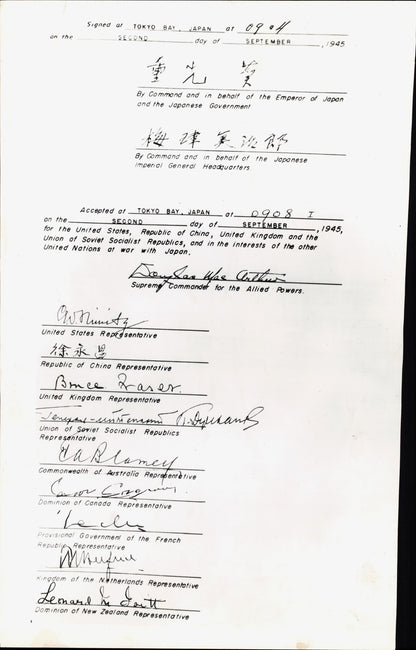 Signed at TOKYO BAY, JAPAN at 0904
on the SECOND day of SEPTEMBER, 1945
重 光 葵
By Command and in behalf of the Emperor of Japan
and the Japanese Government
梅 津 美 治 郎
By Command and in behalf of the Japanese
Imperial General Headquarters
Accepted at TOKYO BAY, JAPAN at 0908 I
on the SECOND day of SEPTEMBER, 1945,
for the United States, Republic of China, United Kingdom and the
Union of Soviet Socialist Republics, and in the interests of the other
United Nations at war with Japan.
Douglas MacArthur
Supreme Commander for the Allied Powers.
C.W. Nimitz
United States Representative
徐永昌
Republic of China Representative
Bruce Fraser
United Kingdom Representative
Union of Soviet Socialist Republics
Representative
T.A. Blamey
Commonwealth of Australia Representative
Dominion of Canada Representative
Provisional Government of the French
Republic Representative
Kingdom of the Netherlands Representative
Leonard M Isitt
Dominion of New Zealand Representative